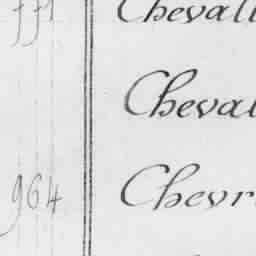 Cheval
Cheval
964 Chevr